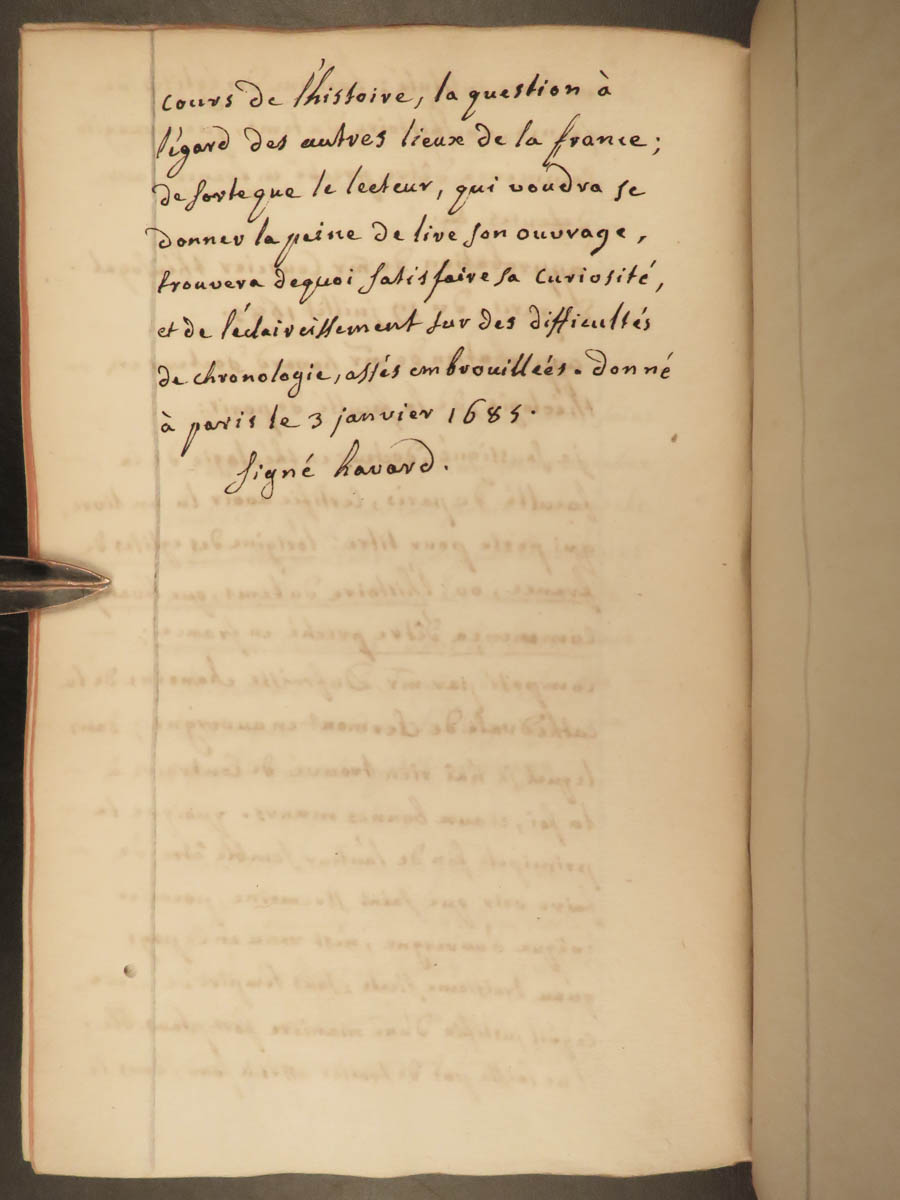 cours de l'histoire, la question à
l'égard des autres lieux de la france ;
de sorte que le lecteur, qui voudra se
donner la peine de lire son ouvrage,
trouvera dequoi satisfaire sa curiosité,
et de l'éclaircissement sur des difficultés
de chronologie, assés embrouilleés. donné
à paris le 3 janvier 1685.
signé havard.